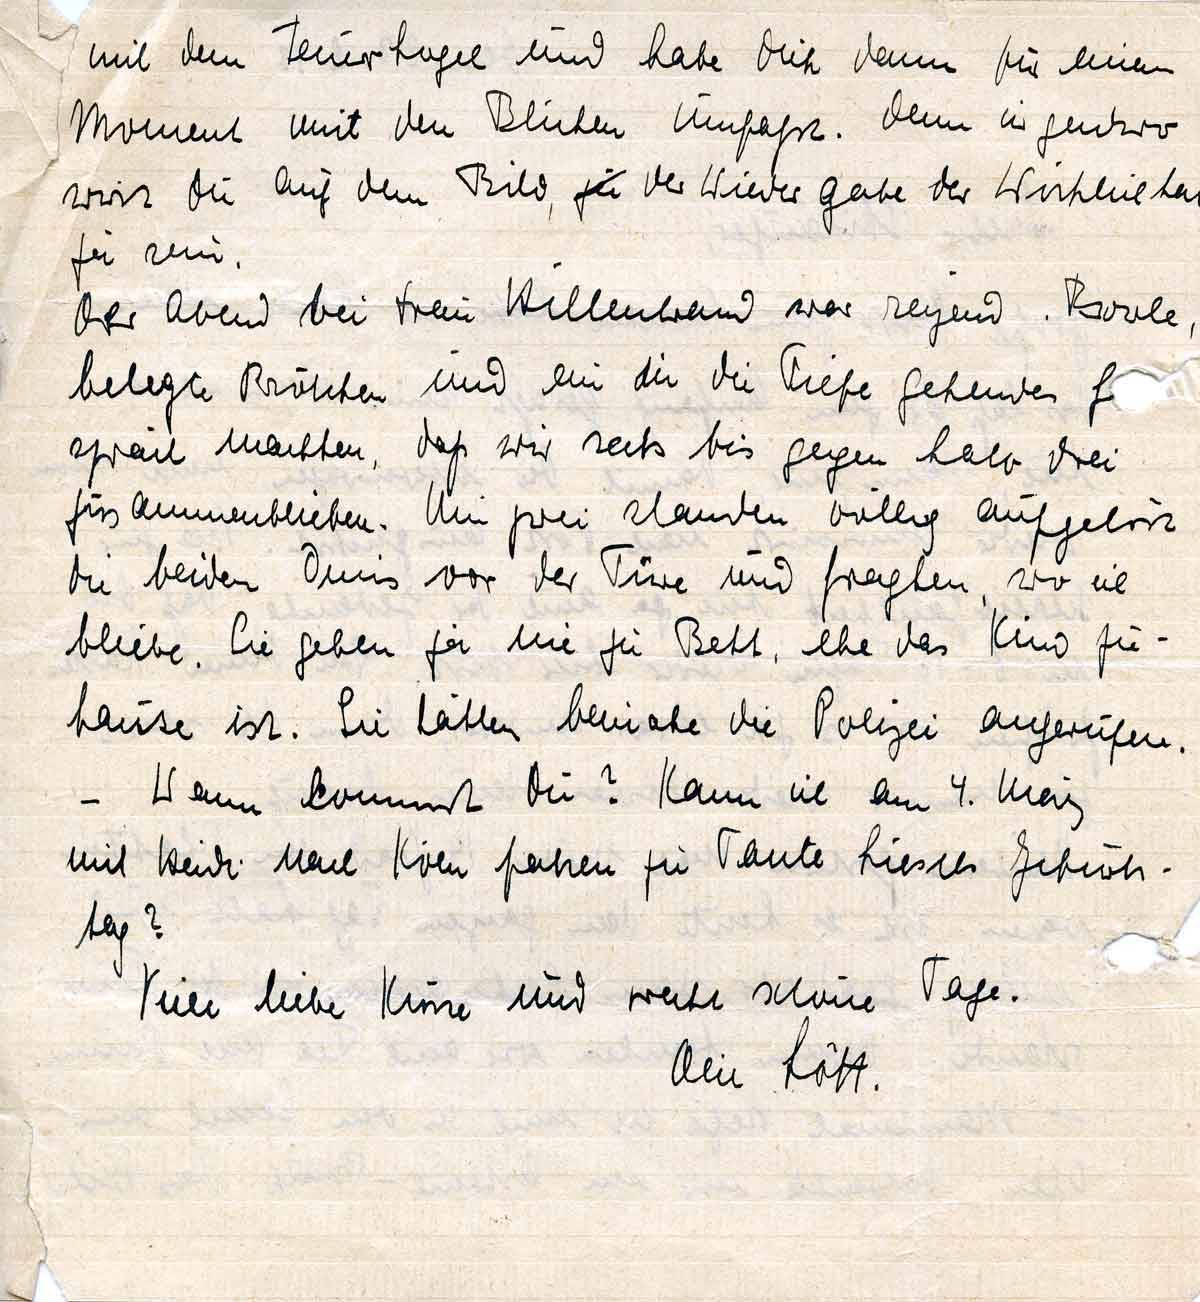 mit dem Feuerkogel und habe Dich dann für einen
Moment mit den Blicken umfasst. Denn irgendwo
wirst Du auf dem Bild, zu der Wiedergabe der Wirklichkeit
zu sein.
Der Abend bei Frau Hillenbrand war reizend. Bowle,
belegte Brötchen und ein in die Tiefe gehendes Ge-
spräch machten, daß wir sechs bis gegen halb drei
zusammenblieben. Um zwei standen völlig aufgelöst
die beiden Omis vor der Türe und fragten, wo ich
bliebe. Sie gehen ja nie zu Bett, ehe das Kind zu-
hause ist. Sie hätten beinahe die Polizei angerufen.
– Wann kommst Du? Kann ich am 4. März
mit Heidi nach Köln fahren zu Tante Liesels Geburts-
tag?
Viele liebe Küsse und recht schöne Tage.
Dein Lött.